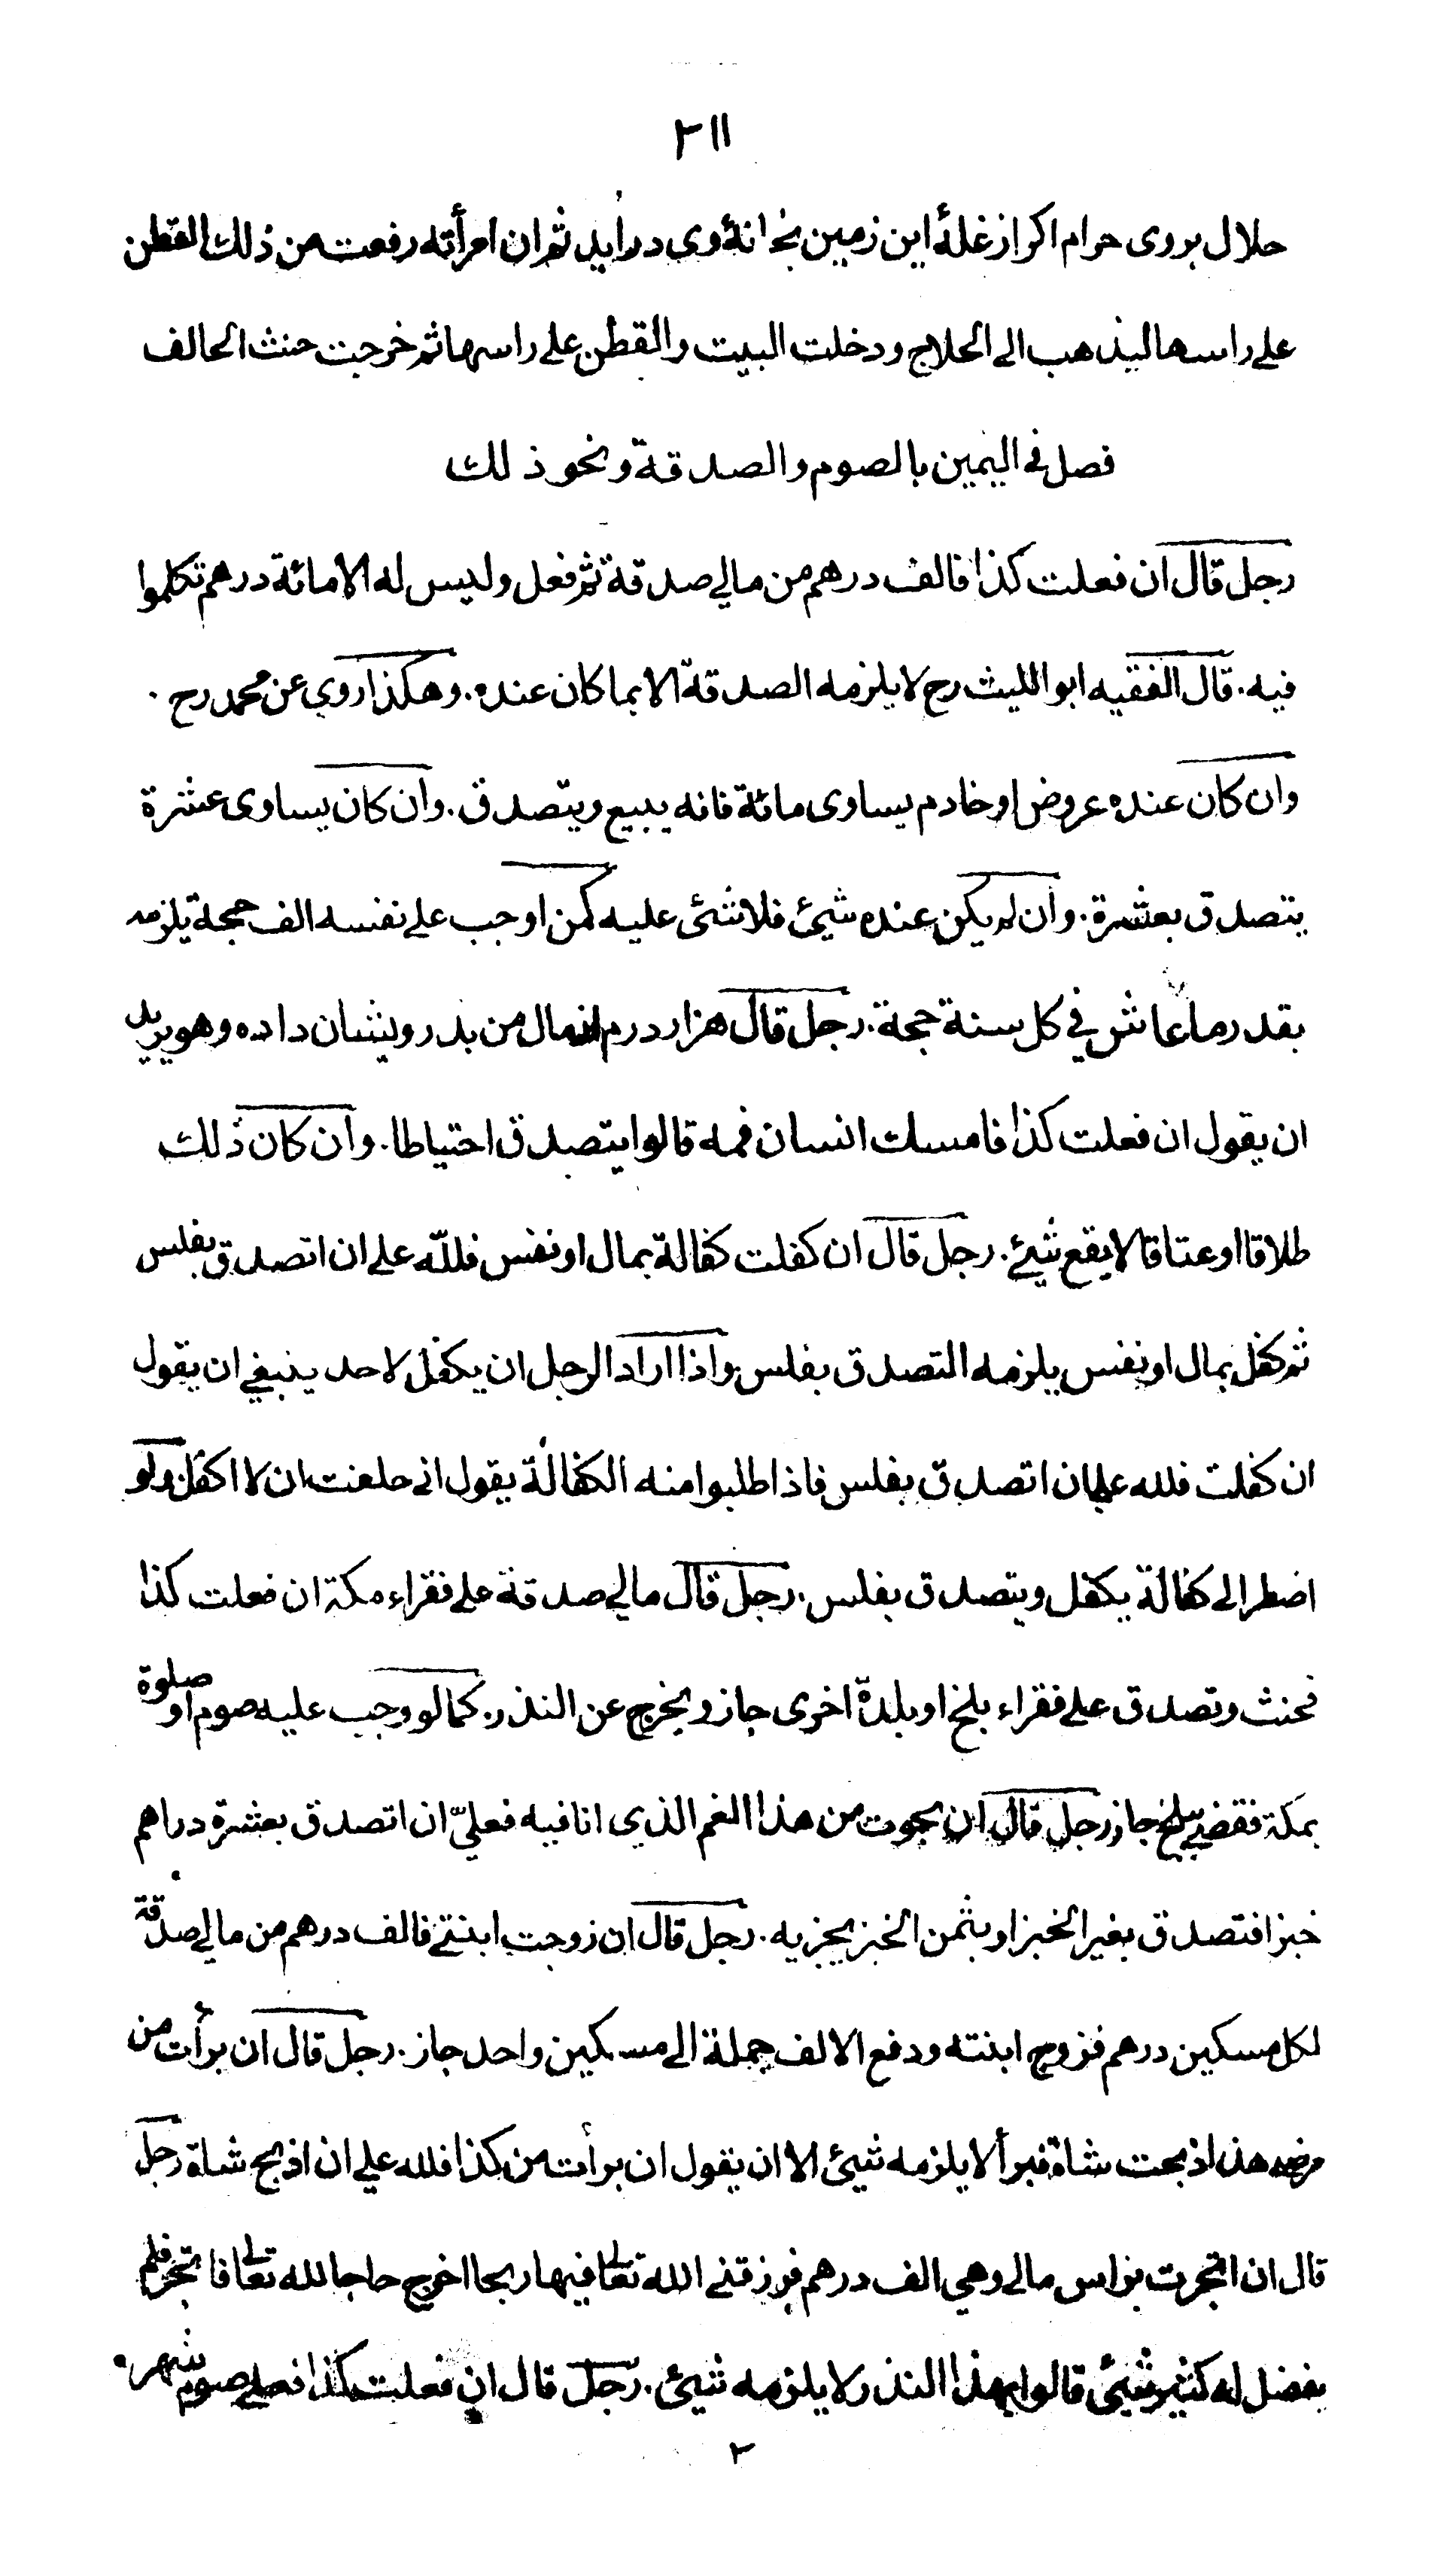 ٢١١
حلال بروى حرام اكر از غلهٔ اين زمين بخانهٔ وى درايد ثم ان امرأته رفعت من ذلك القطن
على راسها ليذهب الى الحلاج ودخلت البيت والقطن على راسها ثم خرجت حنث الحالف
فصل في اليمين بالصوم والصدقة ونحو ذلك
رجل قال ان فعلت كذا فالف درهم من مالي صدقة ثم فعل وليس له الا مائة درهم تكلموا
فيه. قال الفقيه ابو الليث رح لا يلزمه الصدقة الا بما كان عنده. وهكذا روي عن محمد رح.
وان كان عنده عروض او خادم يساوى مائة فانه يبيع ويتصدق. وان كان يساوى عشرة
يتصدق بعشرة. وان لم يكن عنده شيئ فلا شئ عليه كمن اوجب على نفسه الف حجة يلزمه
بقدر ما عاش في كل سنة حجة. رجل قال هزار درم از مال من بدرويشان داده وهو يريد
ان يقول ان فعلت كذا فامسك انسان فمه قالوا يتصدق احتياطا. وان كان ذلك
طلاقا او عتاقا لا يقع شيئ. رجل قال ان كفلت كفالة بمال او نفس فللّه على ان اتصدق بفلس
ثم كفل بمال او نفس يلزمه التصدق بفلس واذا اراد الرجل ان يكفل لاحد ينبغي ان يقول
ان كفلت فلله على ان اتصدق بفلس فاذا طلبوا منه الكفالة يقول اني حلفت ان لا اكفل ولو
اضطر الى كفالة يكفل ويتصدق بفلس. رجل قال مالي صدقة على فقراء مكة ان فعلت كذا
فحنث وتصدق على فقراء بلخ او بلدة اخرى جاز ويخرج عن النذر. كما لو وجب عليه صوم او صلوة
بمكة فقضى ببلخ جاز رجل قال ان نجوت من هذا الغم الذي انا فيه فعليّ ان اتصدق بعشرة دراهم
خبزا فتصدق بغير الخبز او بثمن الخبز يجزيه. رجل قال ان زوجت ابنتي فالف درهم من مالي صدقة
لكل مسكين درهم فزوج ابنته ودفع الالف جملة الى مسكين واحد جاز. رجل قال ان برأت من
مرضي هذا ذبحت شاة فبرأ لا يلزمه شيئ الا ان يقول ان برأت من كذا فلله علي ان اذبح شاة رجل
قال ان اتجرت براس مالي وهي الف درهم فرزقني الله تعالى فيها ربحا اخرج حاجا لله تعالى فاتجر فلم
يفضل له كثير شيئ قالوا بهذا النذر لا يلزمه شيئ. رجل قال ان فعلت كذا فعلي صوم شهر.
٢